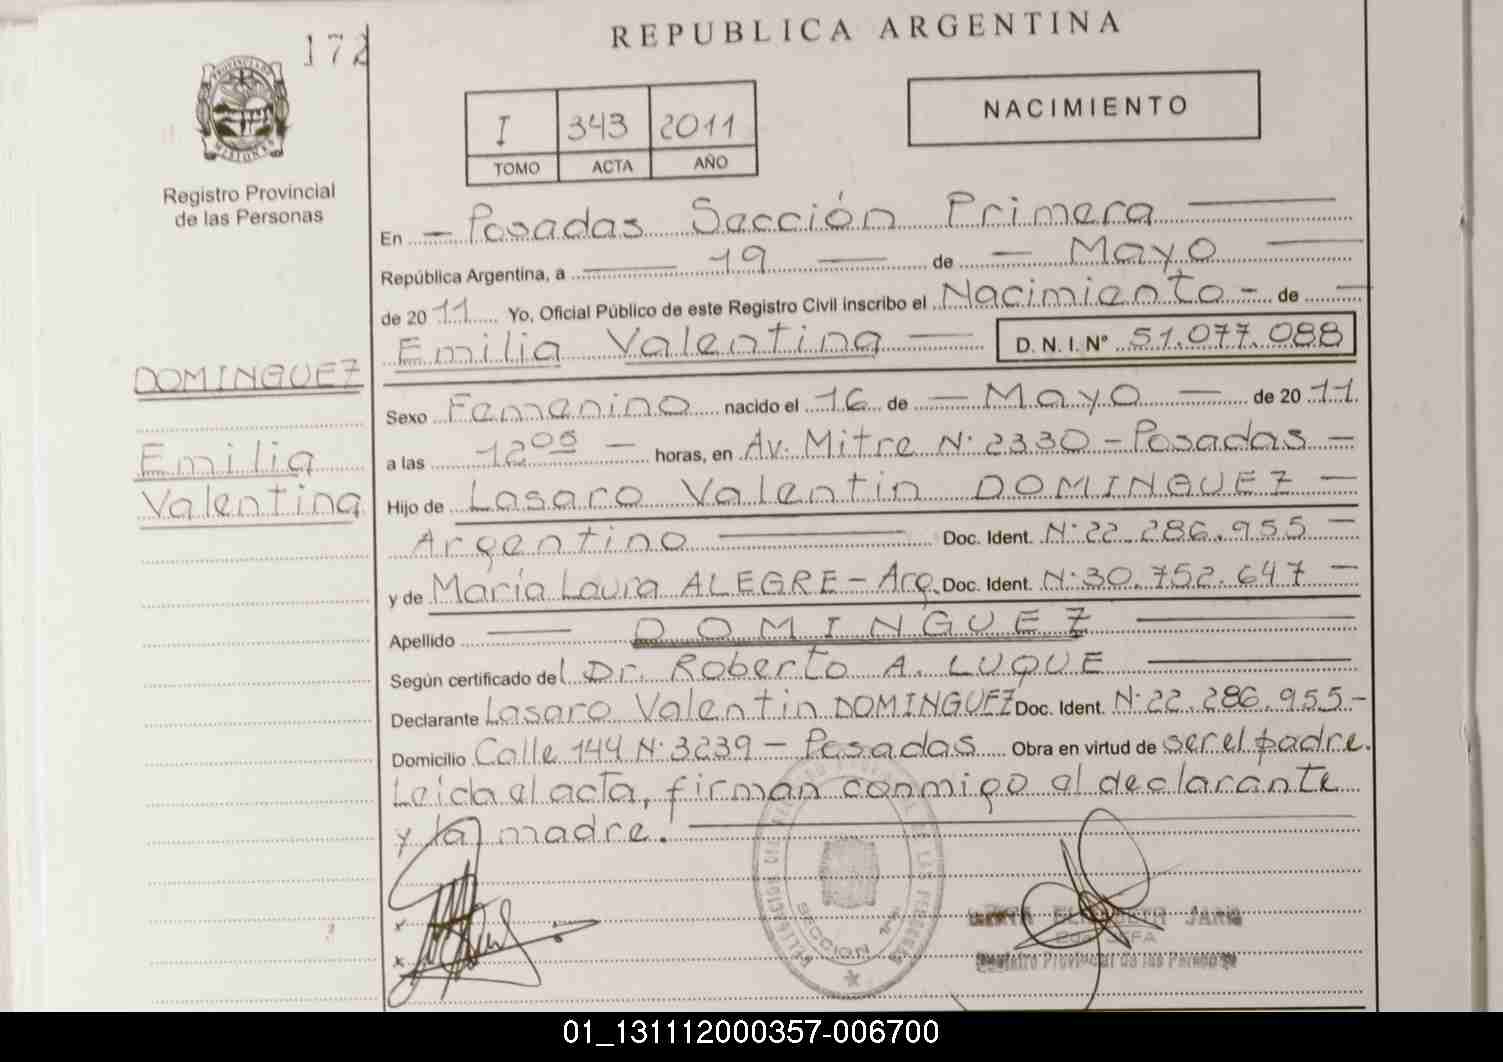 172
REPUBLICA ARGENTINA
PROVINCIA DE MISIONES
Registro Provincial
de las Personas
I 343 2011
TOMO ACTA AÑO
NACIMIENTO
En Posadas Sección Primera
República Argentina, a 19 de Mayo
de 2011 Yo, Oficial Público de este Registro Civil inscribo el Nacimiento - de
Emilia Valentina D. N. I. Nº 51.077.088
DOMINGUEZ
Emilia
Valentina
Sexo Femenino nacido el 16 de Mayo de 2011
a las 12 05 horas, en Av. Mitre N: 2330 - Posadas -
Hijo de Lasaro Valentin DOMINGUEZ -
Argentino Doc. Ident. N: 22.286.955 -
y de María Laura ALEGRE - Arg. Doc. Ident. N: 30.752.647 -
Apellido DOMINGUEZ
Según certificado del Dr. Roberto A. LUQUE
Declarante Lasaro Valentin DOMINGUEZ Doc. Ident. N: 22.286.955 -
Domicilio Calle 144 N: 3239 - Posadas Obra en virtud de ser el padre.
Leida el acta, firman conmigo el declarante
y la madre.
SECCION 1ª
JEFA
Registro Provincial de las Personas
01_131112000357-006700